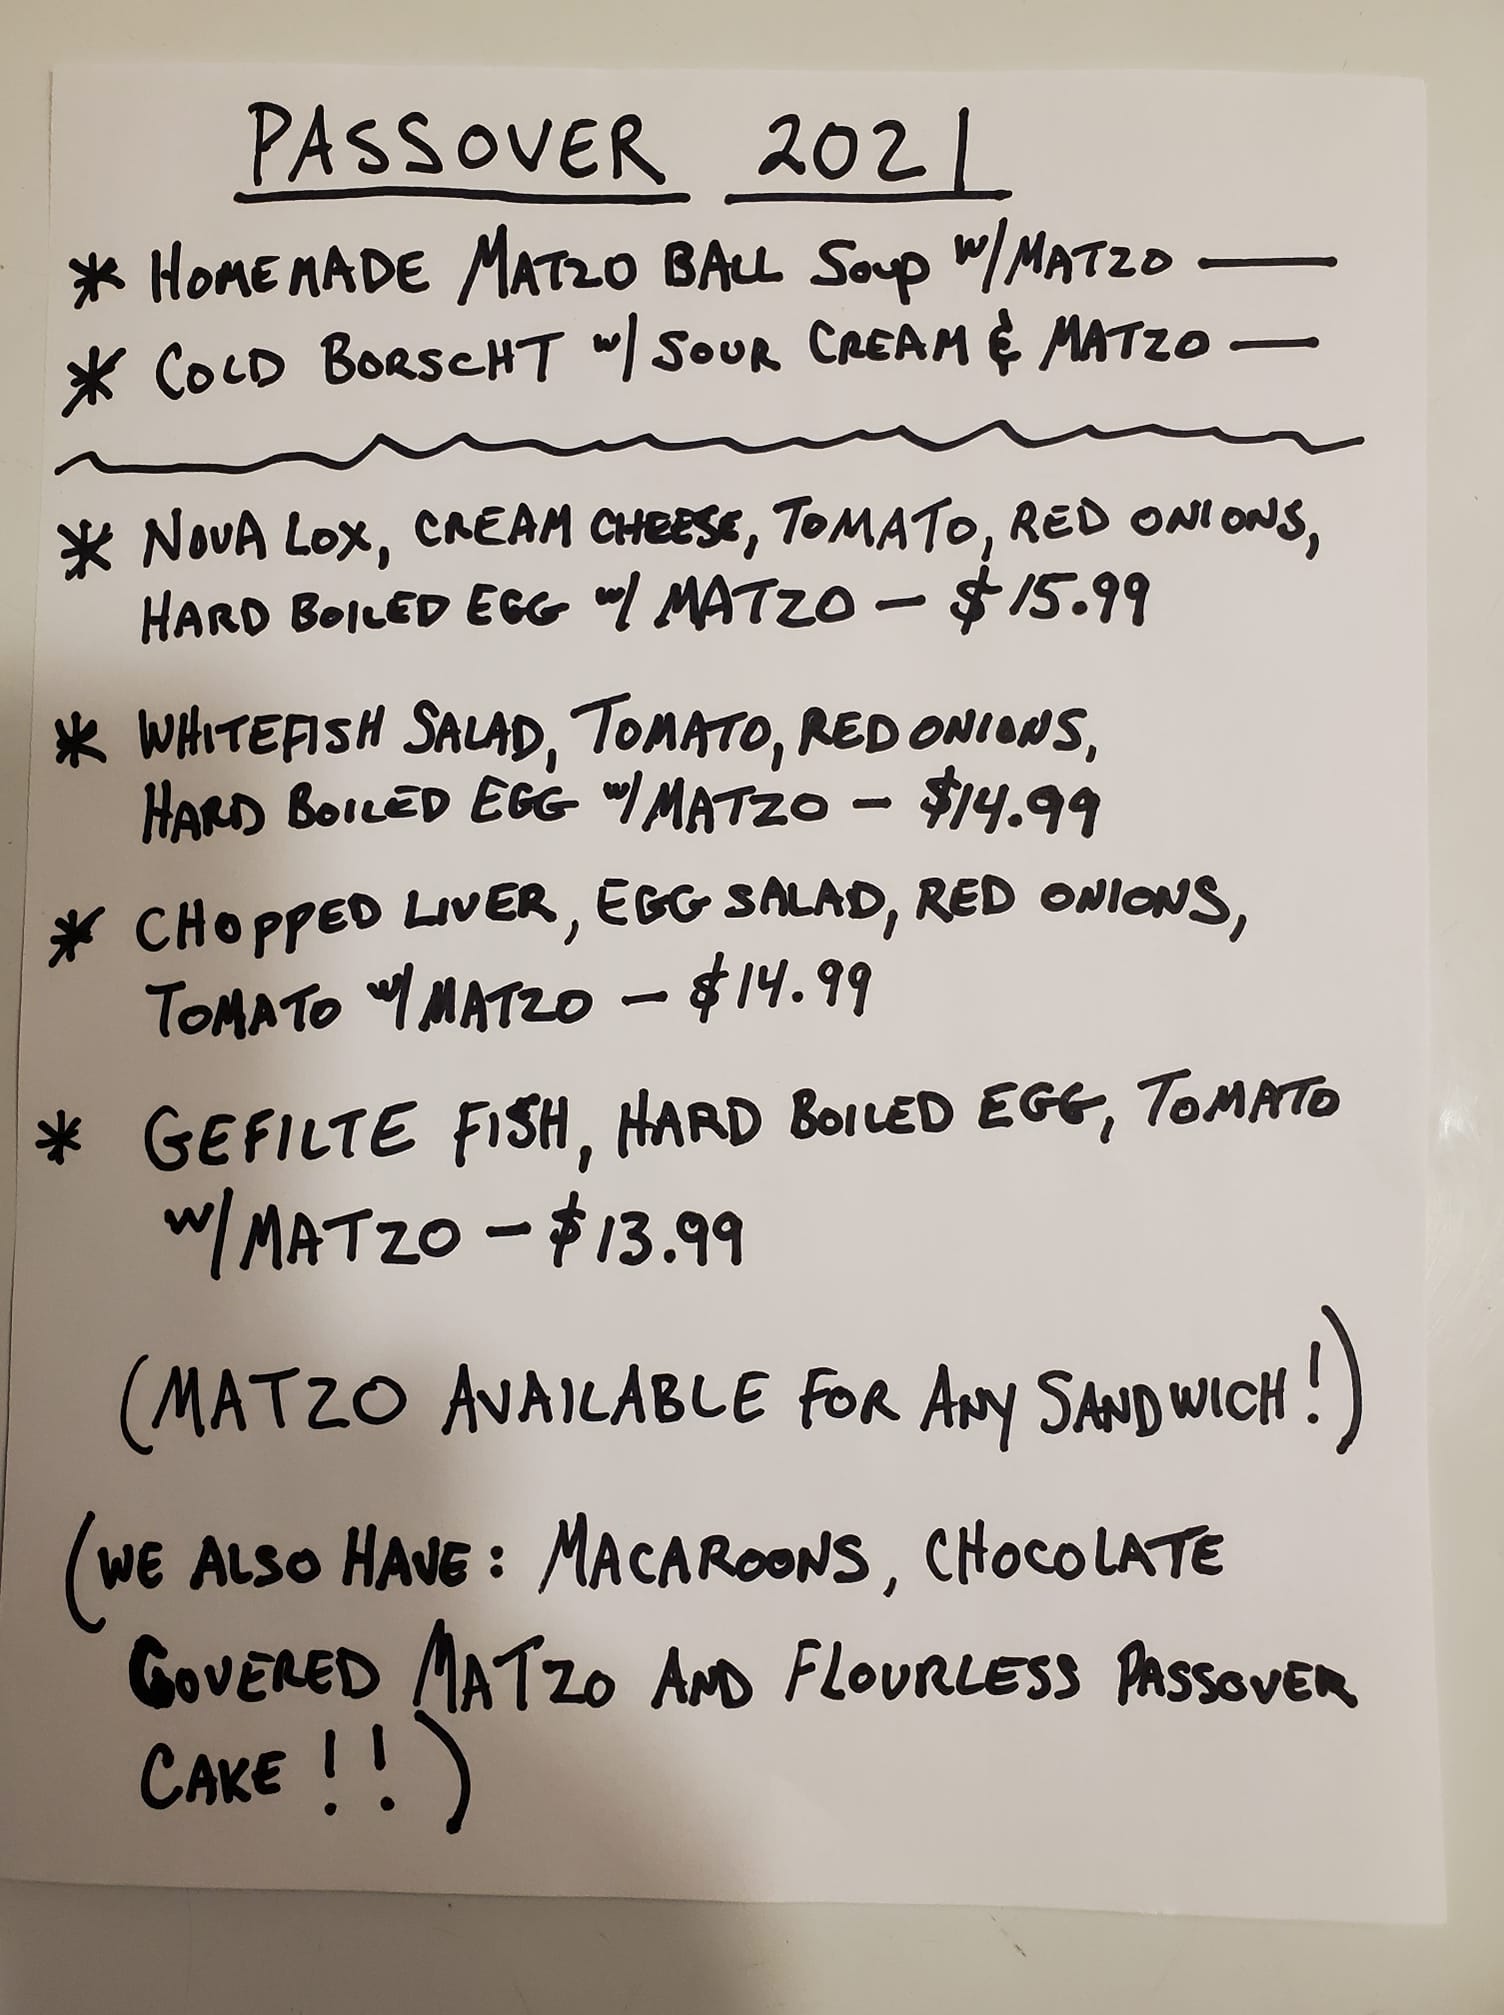 PASSOVER 2021
* HOMEMADE MATZO BALL SOUP W/MATZO —
* COLD BORSCHT W/ SOUR CREAM & MATZO —
* NOVA LOX, CREAM CHEESE, TOMATO, RED ONIONS,
HARD BOILED EGG W/ MATZO — $15.99
* WHITEFISH SALAD, TOMATO, RED ONIONS,
HARD BOILED EGG W/MATZO — $14.99
* CHOPPED LIVER, EGG SALAD, RED ONIONS,
TOMATO W/MATZO — $14.99
* GEFILTE FISH, HARD BOILED EGG, TOMATO
W/MATZO — $13.99
(MATZO AVAILABLE FOR ANY SANDWICH!)
(WE ALSO HAVE: MACAROONS, CHOCOLATE
COVERED MATZO AND FLOURLESS PASSOVER
CAKE!!)